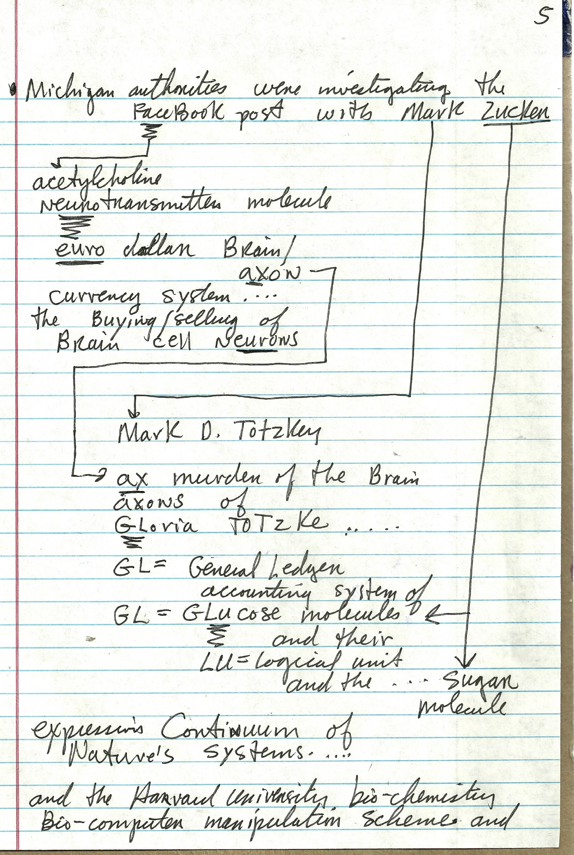 5
Michigan authorities were investigating the
FaceBook post with Mark Zucker
acetylcholine
neurotransmitter molecule
euro dollar Brain/
axon
currency system ....
the Buying/selling of
Brain cell neurons
Mark D. Totzkey
ax murder of the Brain
axons of
GLoria TOTZKe .....
GL = General Ledger
accounting system of
GL = GLucose molecules
and their
LU = Logical unit
and the .... Sugar
molecule
expression Continuum of
Nature's systems.....
and the Harvard University bio-chemistry
Bio-computer manipulation scheme and